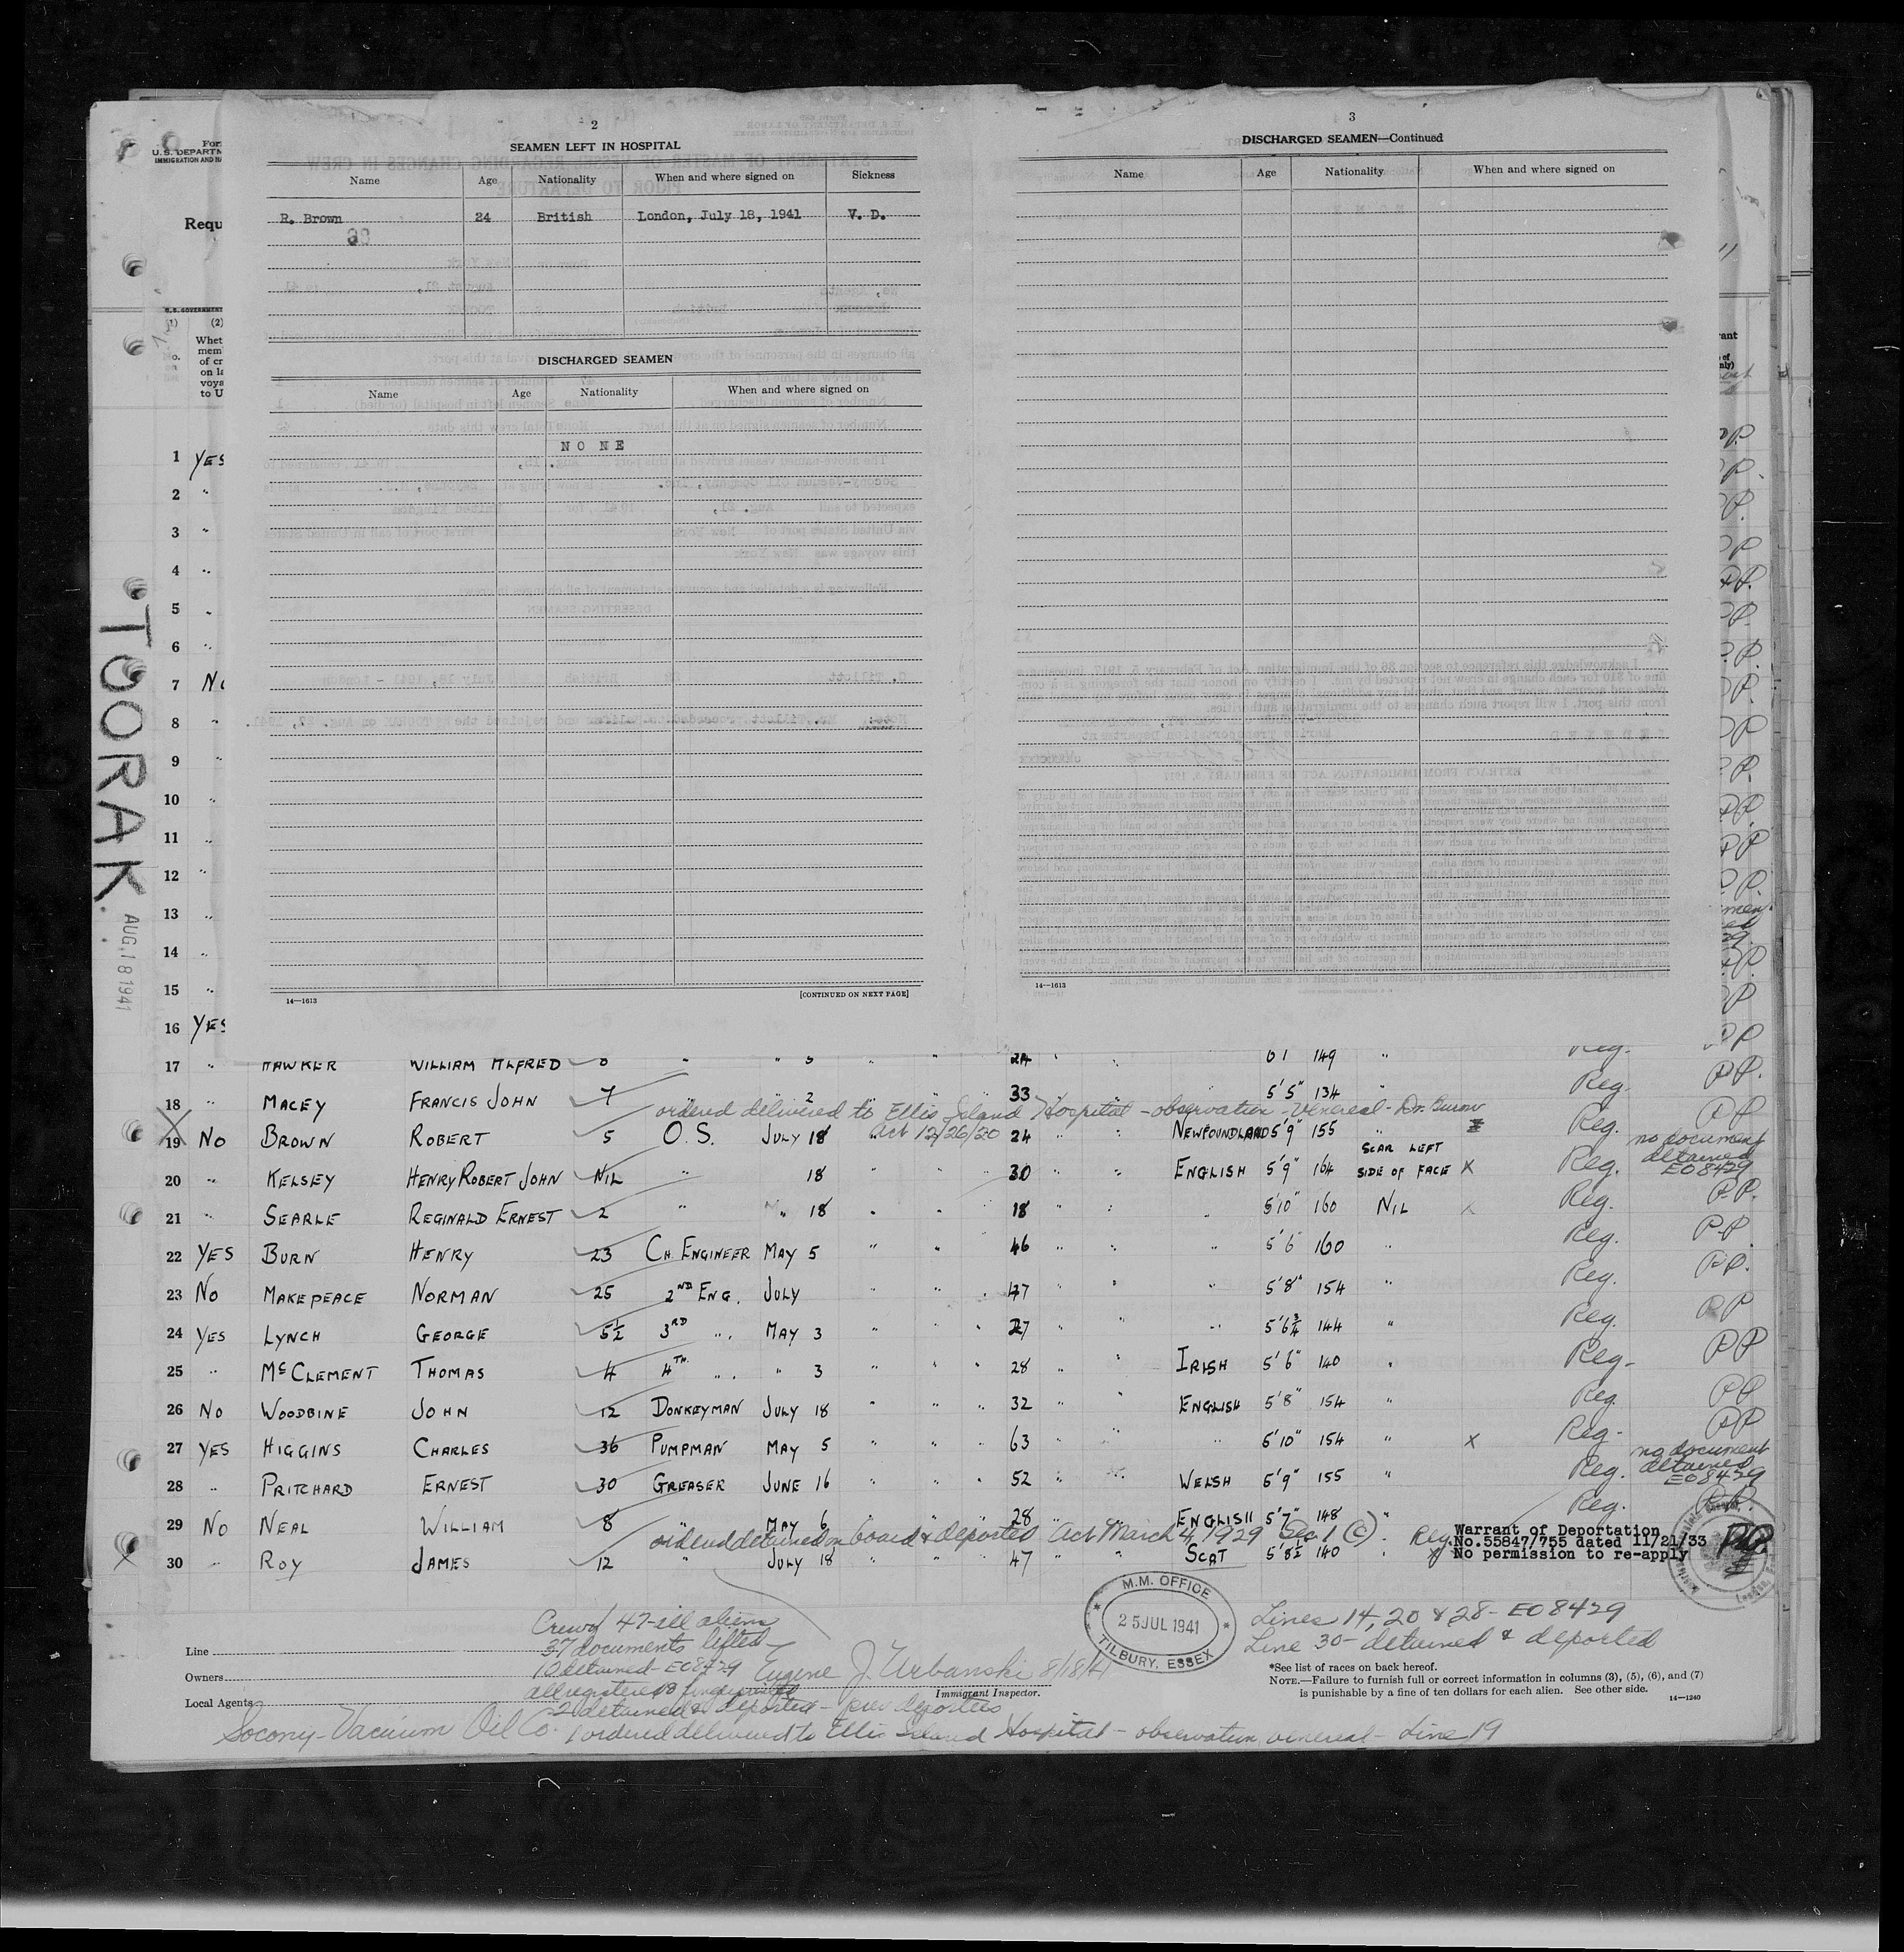 TOORAK
AUG 18 1941
For
U.S. DEPARTM
IMMIGRATION AND NA
Requ
(1) (2)
No.
Whet
mem
of cr
on la
voya
to U
2
SEAMEN LEFT IN HOSPITAL
Name Age Nationality When and where signed on Sickness
R. Brown 24 British London, July 18, 1941 V. D.
DISCHARGED SEAMEN
Name Age Nationality When and where signed on
NONE
14—1613 [CONTINUED ON NEXT PAGE]
3
DISCHARGED SEAMEN—Continued
Name Age Nationality When and where signed on
14—1613
1 YES
2 "
3 "
4 "
5 "
6 "
7 No
8 "
9 "
10 "
11 "
12 "
13 "
14 "
15 "
16 YES
17 " HAWKER WILLIAM ALFRED 24 149 " Reg. PP
18 " MACEY FRANCIS JOHN 7 " " 2 " " 33 " " " 5'5" 134 " Reg. PP.
ordered delivered to Ellis Island Hospital - observation - Venereal - Dr.
Act 12/26/20
19 No BROWN ROBERT 5 O.S. JULY 18 " 24 " " NEWFOUNDLAND 5'9" 155 " Reg. PP
20 " KELSEY HENRY ROBERT JOHN NIL " 18 " " 30 " " ENGLISH 5'9" 164 SCAR LEFT SIDE OF FACE X Reg. no document detained EO8429
21 " SEARLE REGINALD ERNEST 2 " " 18 " " 18 " " " 5'10" 160 NIL Reg. P.P.
22 YES BURN HENRY 23 CH. ENGINEER MAY 5 " " 46 " " " 5'6 160 " Reg. P.P.
23 No MAKEPEACE NORMAN 25 2ND ENG. JULY " " 47 " " " 5'8" 154 " Reg. PP.
24 YES LYNCH GEORGE 5½ 3RD " MAY 3 " " 27 " " " 5'6¾ 144 " Reg. PP
25 " McCLEMENT THOMAS 4 4TH " " 3 " " 28 " " IRISH 5'6" 140 " Reg- PP
26 No WOODBINE JOHN 12 DONKEYMAN JULY 18 " " 32 " " ENGLISH 5'8" 154 " Reg. PP
27 YES HIGGINS CHARLES 36 PUMPMAN MAY 5 " " 63 " " " 5'10" 154 " X Reg- PP
28 " PRITCHARD ERNEST 30 GREASER JUNE 16 " " 52 " " WELSH 5'9" 155 " Reg. no document detained EO8429
29 No NEAL WILLIAM 8 " MAY 6 " " 28 " " ENGLISH 5'7" 148 " Reg. PP.
ordered detained on board & deported Act March 4, 1929 Sec 1 (c).
30 " ROY JAMES 12 " JULY 18 " " 47 " " SCOT 5'8½ 140 " Reg.
Warrant of Deportation
No.55847/755 dated 11/21/33
No permission to re-apply
M.M. OFFICE
25 JUL 1941
TILBURY, ESSEX
Crew of 47 - all aliens
37 documents lifted
10 detained - EO8429
all registered & fingerprinted
2 detained & deported - prev deportees
1 ordered delivered to Ellis Island Hospital - observation venereal - Line 19
Line
Owners
Local Agents
Socony-Vacuum Oil Co.
Eugene J. Urbanski 8/18/41
Immigrant Inspector.
Lines 14, 20 & 28 - EO8429
Line 30 - detained & deported
*See list of races on back hereof.
NOTE.—Failure to furnish full or correct information in columns (3), (5), (6), and (7)
is punishable by a fine of ten dollars for each alien. See other side.
14—1240